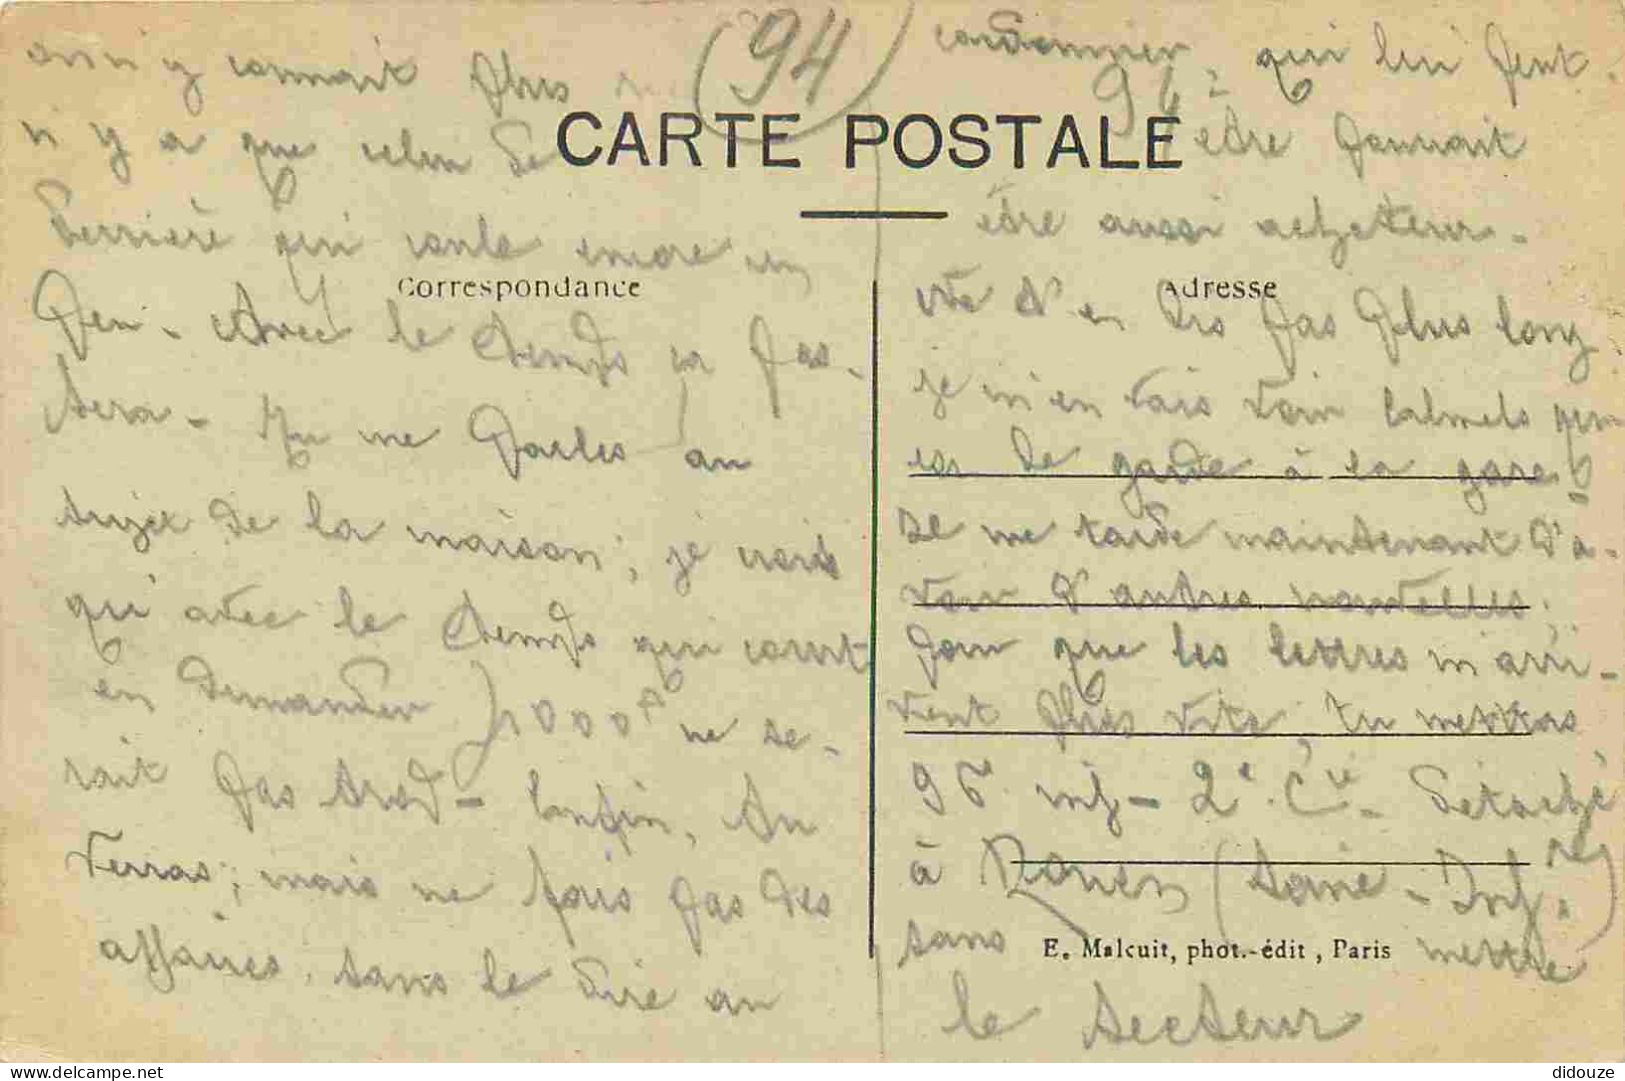 (94)
on n'y connait plus
CARTE POSTALE
n'y a que celui de
derrière qui coule encore un
Correspondance
peu - Avec le temps ça pas-
sera - Tu me parles au
sujet de la maison; je crois
qu'avec le temps qui court
en demander 7000 F ne se-
rait pas trop - Enfin, tu
verras; mais ne fais pas des
affaires sans le dire au
cordonnier, qui lui peut
être pourrait
être aussi acheteur.
Adresse
Je n'en dis pas plus long
je m'en vais voir Calmels qui
est de garde à la gare
Il me tarde maintenant d'a-
voir d'autres nouvelles;
pour que les lettres m'arri-
vent plus vite, tu mettras
96e inf - 2e Cie - Détaché
à Rouen (Seine-Infre)
sans mettre
E. Malcuit, phot.-édit, Paris
le secteur
didouze